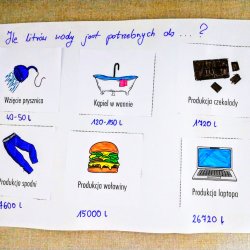 Ile litrów wody jest potrzebnych do ... ?
Wzięcie prysznica
40-50 l
Kąpiel w wannie
120-150 l
Produkcja czekolady
1720 l
Produkcja spodni
7600 l
Produkcja wołowiny
15000 l
Produkcja laptopa
26720 l